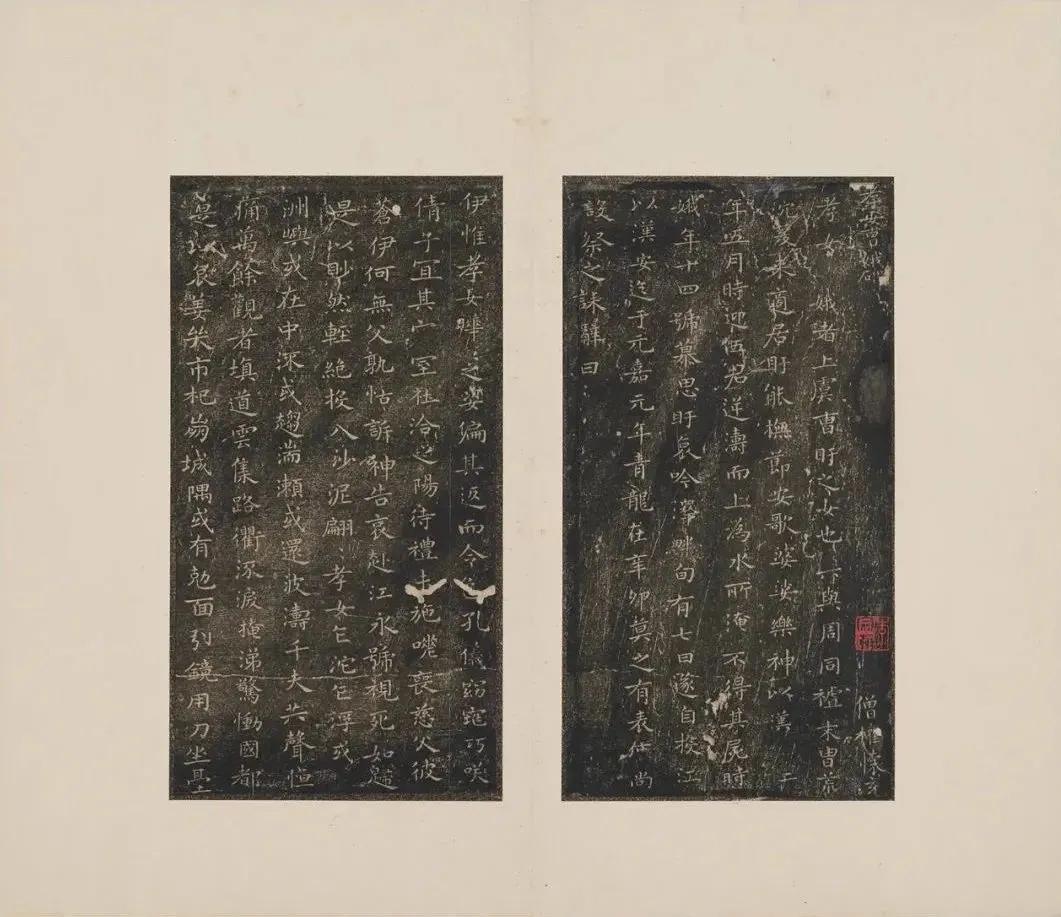 孝女曹娥碑
孝女曹娥者上虞曹盱之女也其先與周同祖末胄荒
沉爰來適居盱能撫節安歌婆娑樂神以漢安二
年五月時迎伍君逆濤而上為水所淹不得其屍時
娥年十四號慕思盱哀吟澤畔旬有七日遂自投江
以漢安迄于元嘉元年青龍在辛卯莫之有表度尚
設祭之誄辭曰
伊惟孝女曄曄之姿偏其返而令色孔儀窈窕巧咲
倩子宜其家室在洽之陽待禮未施嗟喪慈父彼
蒼伊何無父孰怙訴神告哀赴江永號視死如歸
是以眇然輕絕投入沙泥翩翩孝女乍沉乍浮或
洲嶼或在中流或趨湍瀨或還波濤千夫共聲悼
痛萬餘觀者填道雲集路衢泣淚掩涕驚慟國都
是以哀姜哭市杞崩城隅或有勉面引鏡用刀坐臺
僧權 懷充